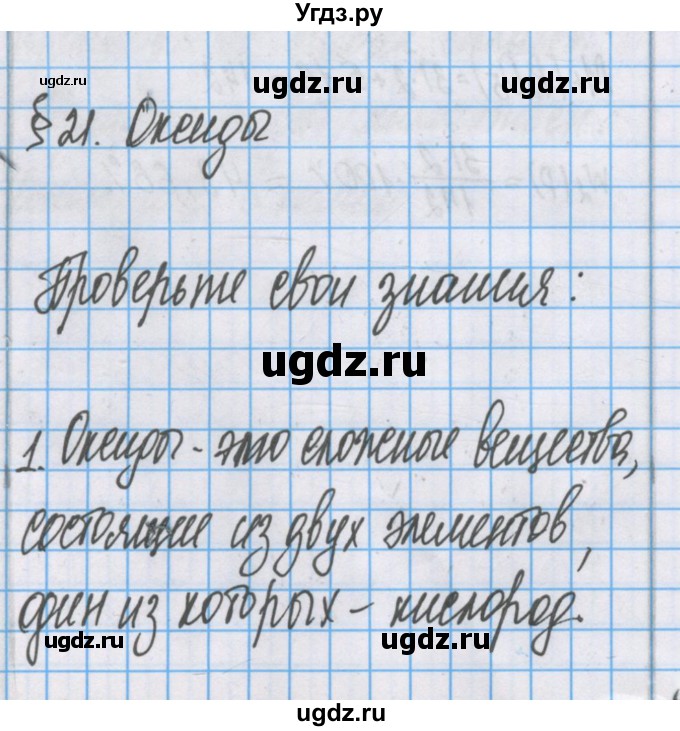 Угдз.ру
ugdz.ru ugdz.ru ugdz.ru
§ 21. Оксиды
Проверьте свои знания:
ugdz.ru
1. Оксиды - это сложные вещества,
состоящие из двух элементов,
один из которых - кислород.
ugdz.ru ugdz.ru
ugdz.ru